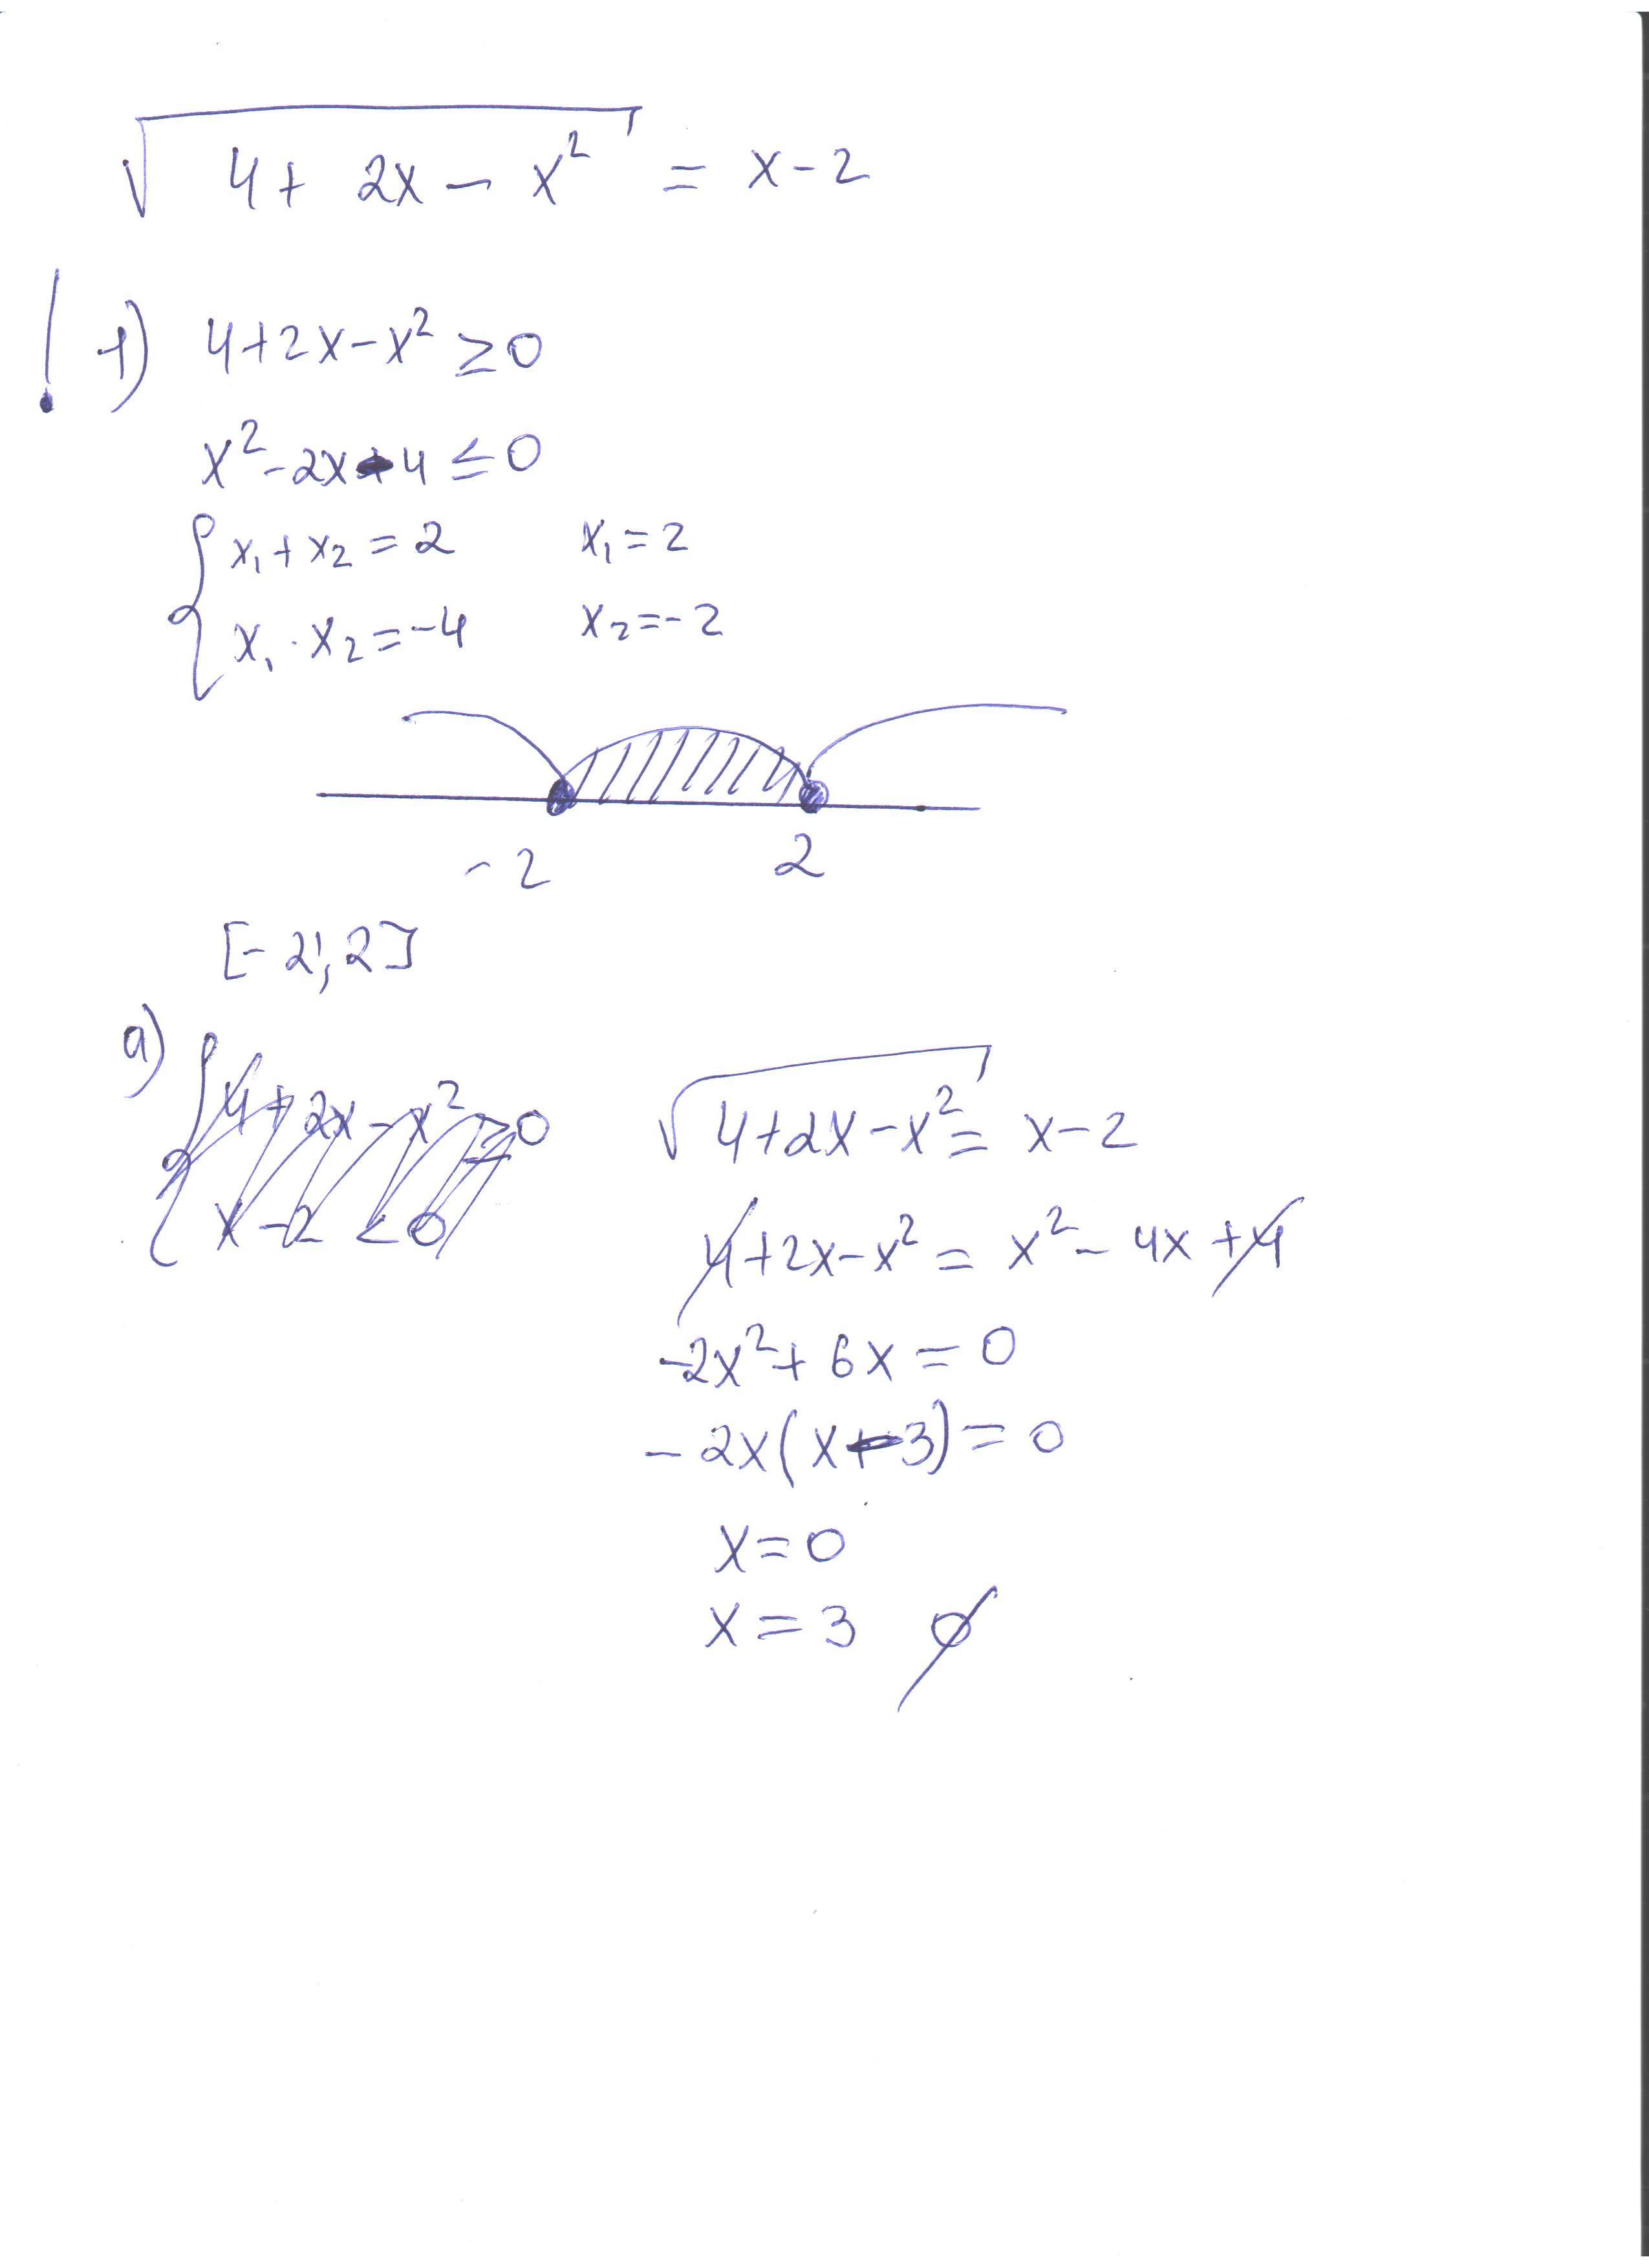 √(4 + 2x - x²) = x - 2
! 1) 4 + 2x - x² ≥ 0
x² - 2x - 4 ≤ 0
{ x₁ + x₂ = 2    x₁ = 2
x₁ · x₂ = -4    x₂ = -2
-2    2
[-2; 2]
a) { 4 + 2x - x² ≥ 0    √(4 + 2x - x²) = x - 2
x - 2 < 0    4 + 2x - x² = x² - 4x + 4
-2x² + 6x = 0
-2x(x - 3) = 0
x = 0
x = 3 ∅